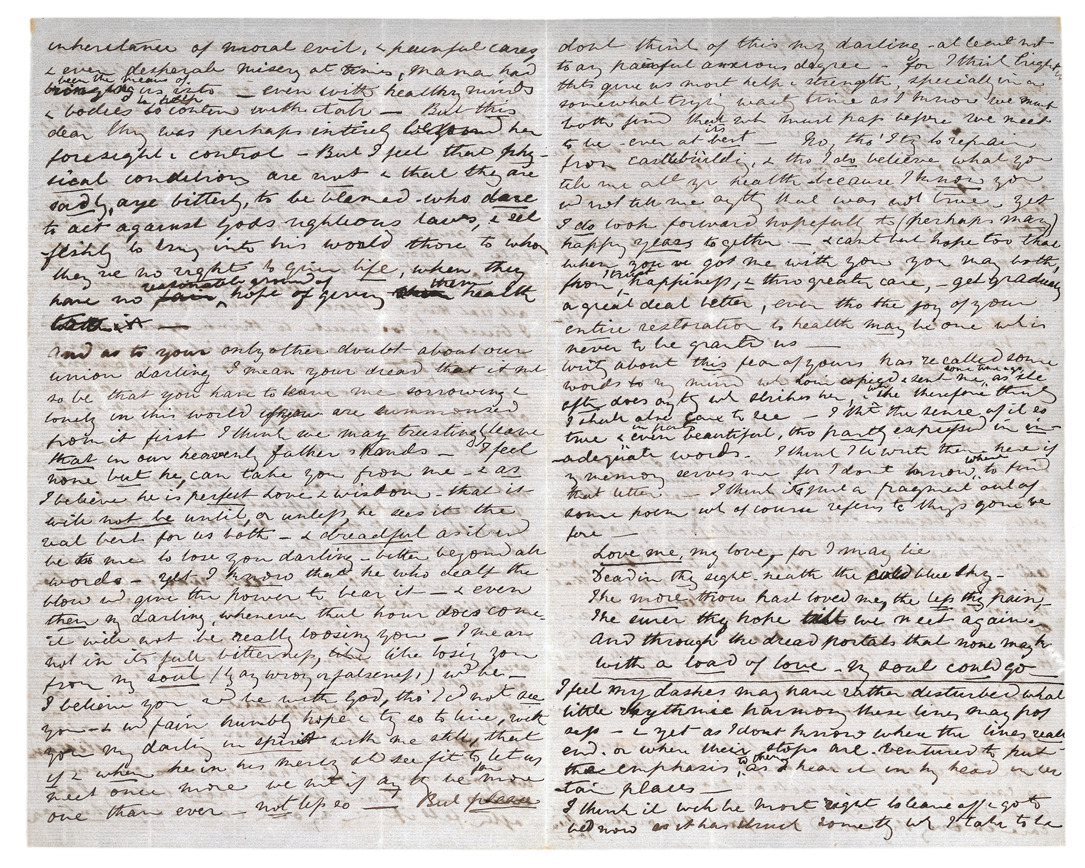 inheritance of moral evil, & painful cares
& even desperate misery at times, mama had
been the means of
bringing us into — even with healthy minds
& bodies to help to contend with it all — But this
dear thing was perhaps entirely beyond her
foresight & control — But I feel that phy-
sical conditions are not & that they are
sadly, aye bitterly, to be blamed who dare
to act against Gods righteous laws, & sel
fishly to bring into his world those to whom
they've no right to give life, when they
reasonable ground of them
have no fair hope of giving health
with it —
And as to your only other doubt about our
union darling I mean your dread that it mt
so be that you have to leave me sorrowing &
lonely in this world if you are summoned
from it first I think we may trustingly leave
that in our heavenly father's hands — I feel
none but he, can take you from me — & as
I believe he is perfect Love & wisdom — that it
will not be until, or unless he sees it the
real best for us both — & dreadful as it wd
be to me to lose you darling — bitter beyond all
words — yet I know that he who dealt the
blow wd give the power to bear it — & even
then my darling, whenever that hour does come
it will not be really loosing you — I mean
not in its full bitterness, like losing you
from my soul (by any wrong or falseness) wd be —
I believe you wd be with God, tho' I cd not see
you — & wd fain humbly hope & try so to live, with
you my darling in spirit with me still, that
if & when he in his mercy shd see fit to let us
meet once more we mt if any be more
one than ever — not less so — But please
dont think of this my darling — at least not
to any painful anxious degree — for I think bright
thts give us most help & strength, specially in a
somewhat trying waiting time as I know we must
both find that wh must pass before we meet
its
to be — ever at best — No, tho' I try to refrain
from castlebuilding, & tho I do believe what you
tell me all yr health because I know you
wd not tell me anything that was not true yet
I do look forward hopefully to (perhaps many)
happy years together — & can't but hope too that
when you've got me with you you may both,
I trust
from happiness, & thro greater care, — get gradually
a great deal better, even tho the joy of your
entire restoration to health may be one wh is
never to be granted us —
Writing about this fear of yours has recalled some
some time ago
words to my mind wh copied & sent me, as she
often does anything wh strikes her, & wh she therefore thinks
I shall also care to see — I tht the sense of it so
in part
true & even beautiful, tho partly expressed in in-
adequate words. I think I'll write them here if
my memory serves me — for I don't know where to find
that letter — I think it's just a fragment out of
some poem wh of course refers to things gone be
fore —
Love me, my love, for I may lie
Dead in thy sight neath the cold blue sky —
The more thou hast loved me, the less thy pain,
The surer thy hope till we meet again.
And through the dread portals that none may
with a load of love — my soul could go
I feel my dashes may have rather disturbed what
little rhythmic harmony these lines may pos
sess — & yet as I dont know where the lines really
end, or where their stops are, ventured to put
to them
the emphasis, as I hear it in my head in cer
tain places —
I think it will be most right to leave off & go to
bed now as it has struck something wh I take to be